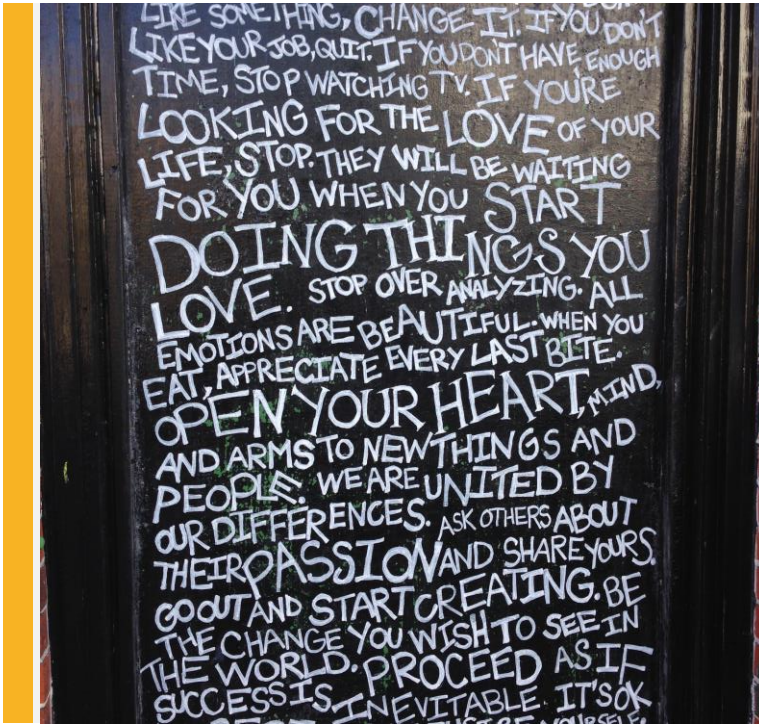 LIKE SOMETHING, CHANGE IT. IF YOU DON'T
LIKE YOUR JOB, QUIT. IF YOU DON'T HAVE ENOUGH
TIME, STOP WATCHING TV. IF YOU'RE
LOOKING FOR THE LOVE OF YOUR
LIFE, STOP. THEY WILL BE WAITING
FOR YOU WHEN YOU START
DOING THINGS YOU
LOVE. STOP OVER ANALYZING. ALL
EMOTIONS ARE BEAUTIFUL. WHEN YOU
EAT, APPRECIATE EVERY LAST BITE.
OPEN YOUR HEART, MIND,
AND ARMS TO NEW THINGS AND
PEOPLE. WE ARE UNITED BY
OUR DIFFERENCES. ASK OTHERS ABOUT
THEIR PASSION AND SHARE YOURS.
GO OUT AND START CREATING. BE
THE CHANGE YOU WISH TO SEE IN
THE WORLD. PROCEED AS IF
SUCCESS IS INEVITABLE. IT'S OK